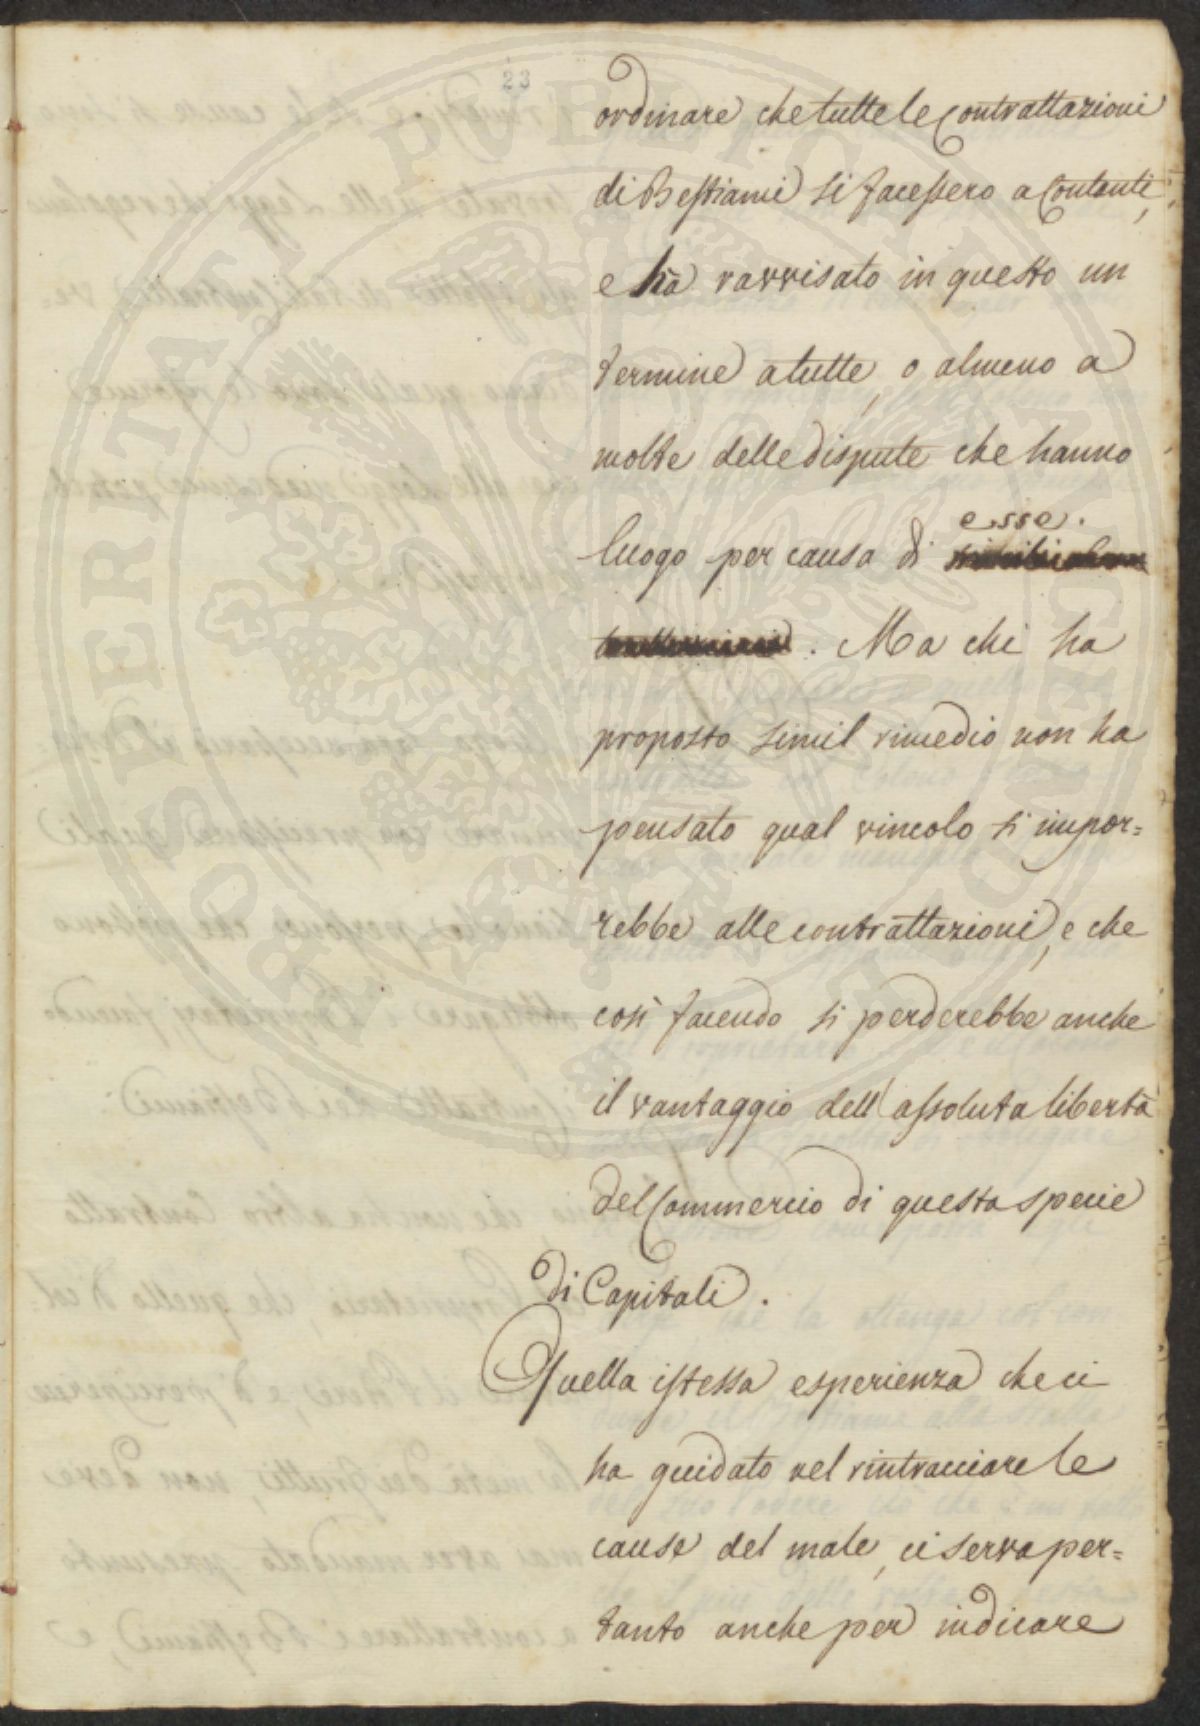 23
ordinare che tutte le Contrattazioni
di Bestiami si facessero a Contanti,
e hà ravvisato in questo un
termine a tutte, o almeno a
molte delle dispute che hanno
esse.
luogo per causa di
. Ma chi ha
proposto simil rimedio non ha
pensato qual vincolo si impor=
rebbe alle contrattazioni, e che
così facendo si perderebbe anche
il vantaggio dell'assoluta libertà
del Commercio di questa specie
di Capitali.
Quella istessa esperienza che ci
ha guidato nel rintracciare le
cause del male, ci serva per=
tanto anche per indicare
PROSPERITATI PUBLICAE AUGENDAE